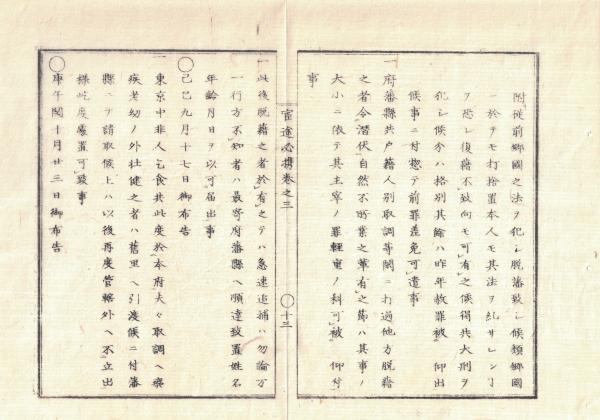 附從前鄉國之法ヲ犯シ脱藩致シ候類鄉國
ニ於テモ打捨置本人モ其法ヲ糺サレン丁
ヲ恐レ復籍不致向モ可有之候得共大刑ヲ
犯シ候分ハ格別其餘ハ昨年赦罪被 仰出
候事ニ付惣テ前罪差免可遣事
一府藩縣共戸籍人別取調等閑ニ打過他方脱籍
之者令潜伏自然不所業之輩有之節ハ其事ノ
大小ニ依テ其主宰ノ罪輕重ノ科可被 仰付
事
官途必携巻之三
〇十三
一此後脱籍之者於有之テハ急速追捕ハ勿論万
一行方不知者ハ最寄府藩縣へ順達致置姓名
年齡月日ヲ以可届出事
〇
己巳九月十七日御布告
一東京中非人乞食共此度於本府夫々取調へ癈
疾老幼ノ外壮健之者ハ舊里へ引渡候ニ付藩
縣ニヲ請取候上ハ以後再度管轄外へ不立出
様屹度嚴置可致事
〇
庚午閏十月廿三日御布告